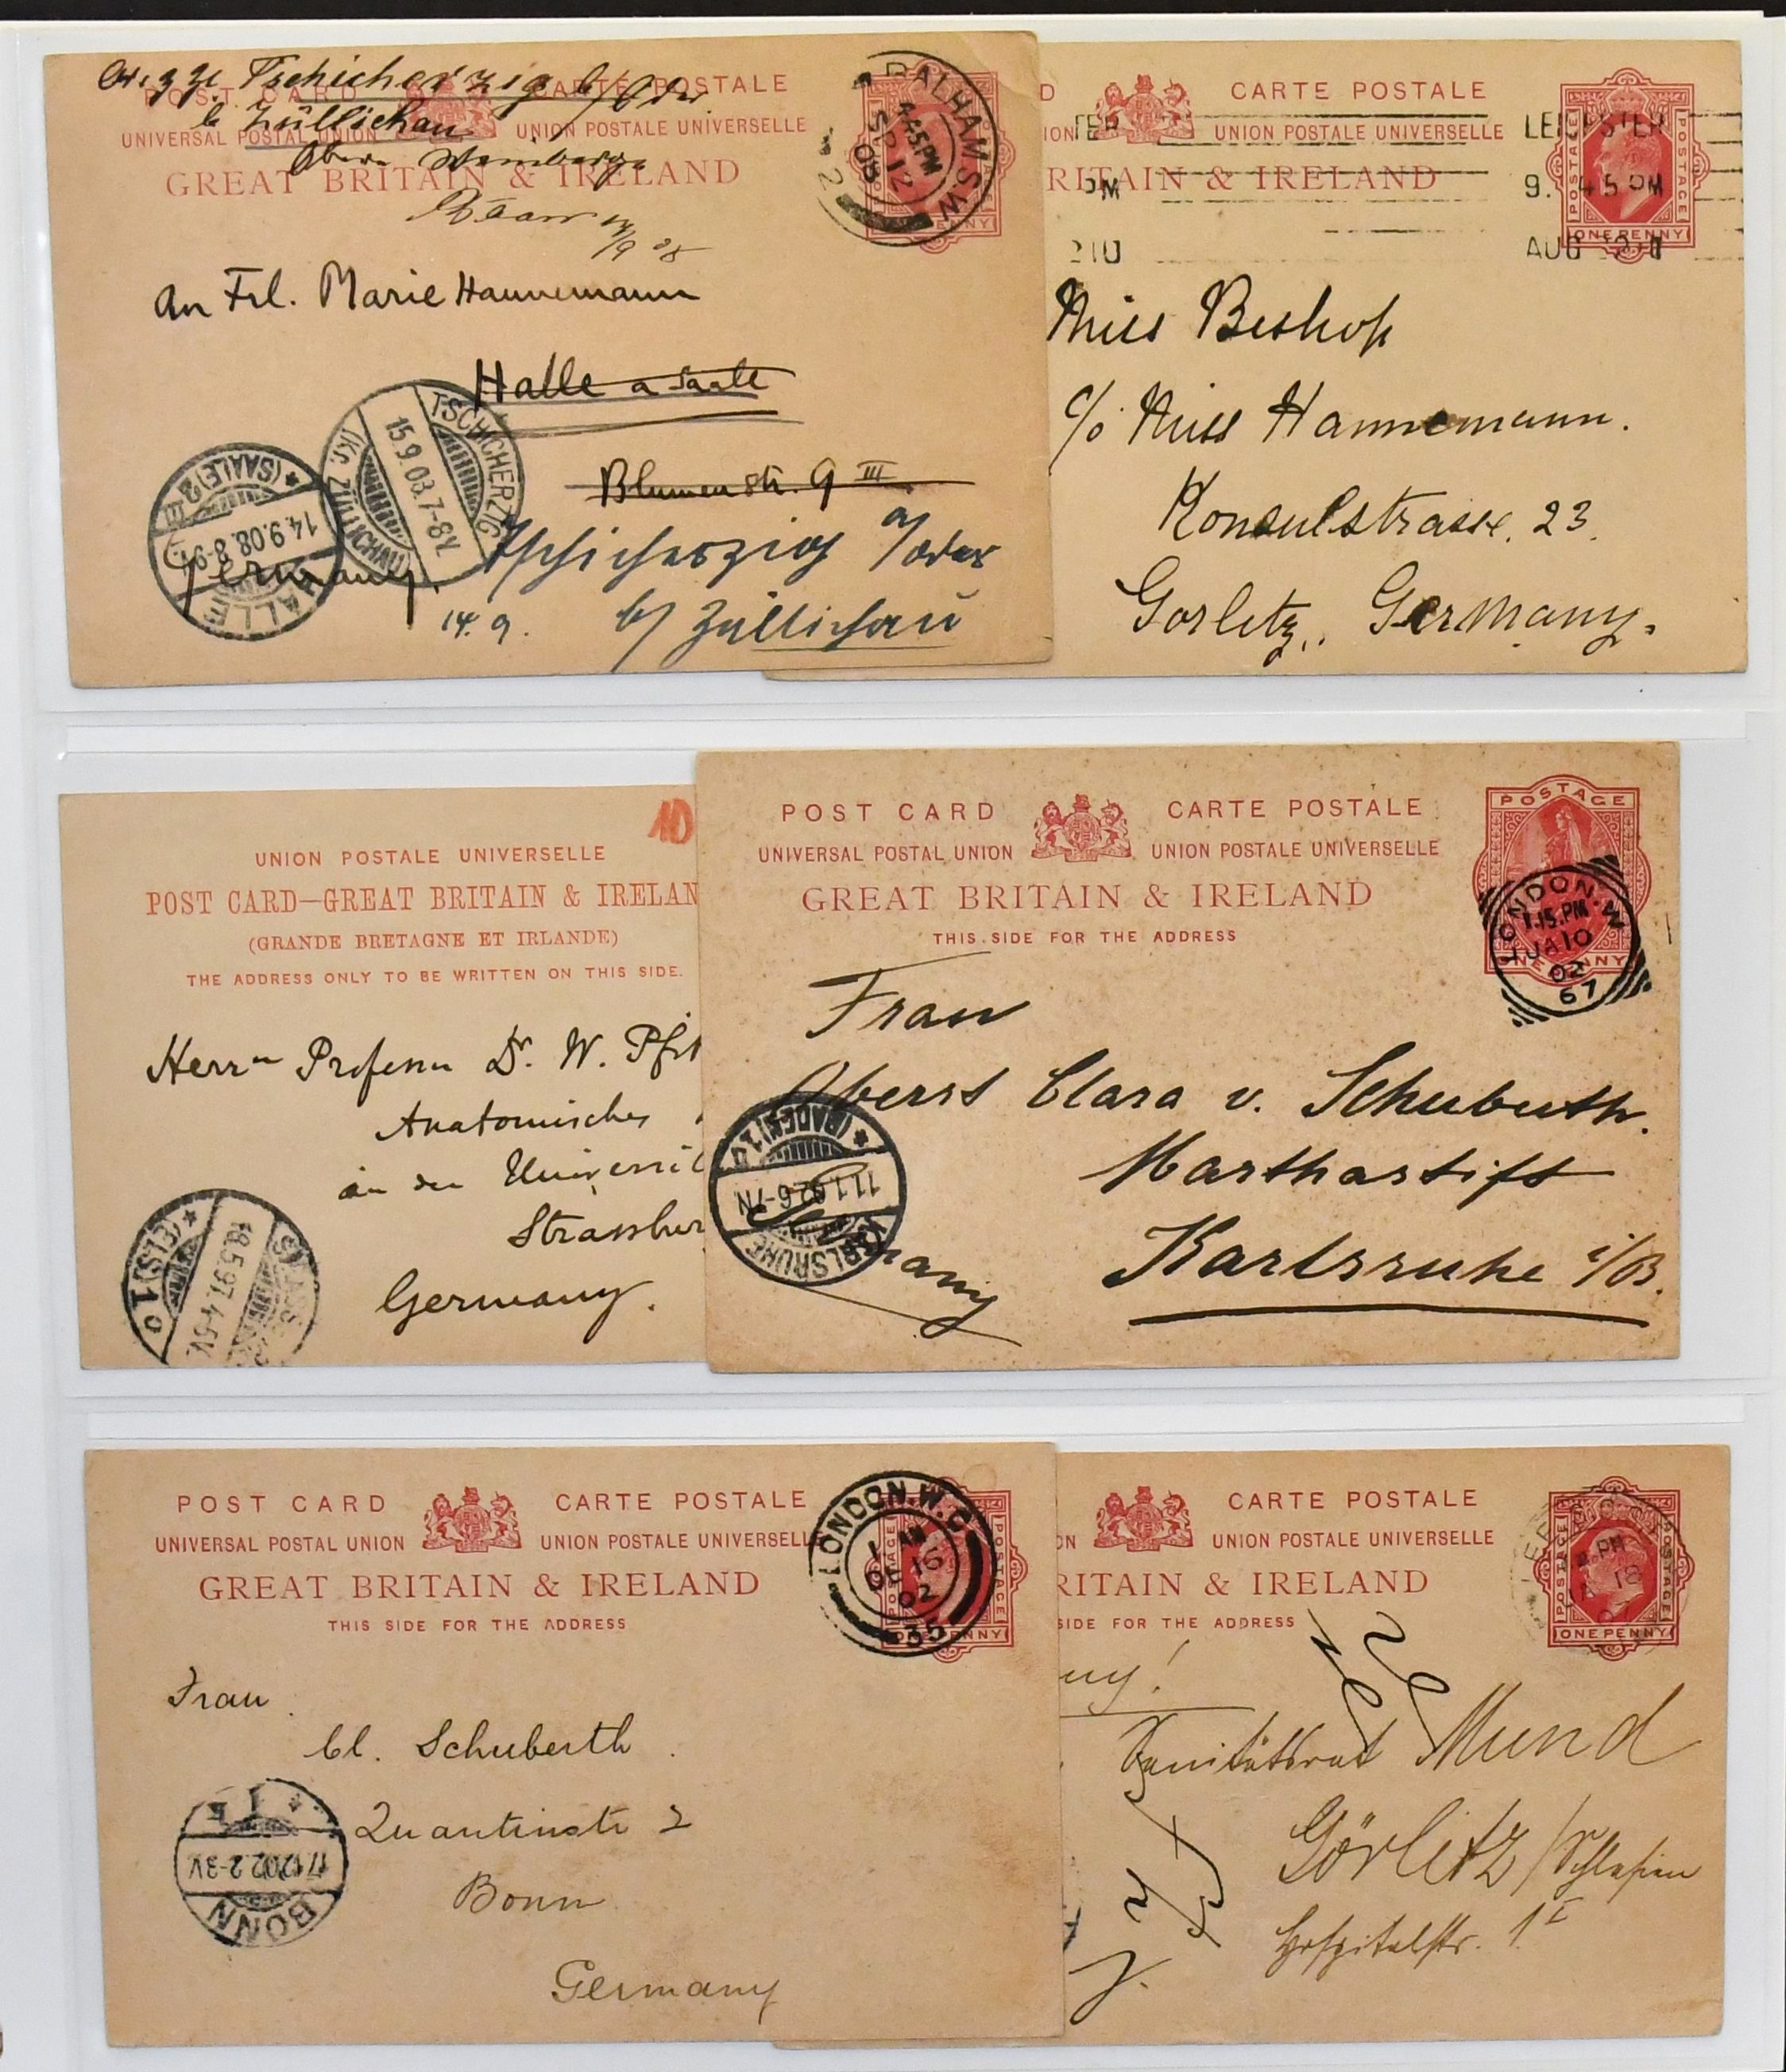 Tschicherzig b/Oder
b Züllichau
POST CARD CARTE POSTALE
UNIVERSAL POSTAL UNION UNION POSTALE UNIVERSELLE
GREAT BRITAIN & IRELAND
BALHAM. S.W.
4.45 PM
SP 12
08
2
An Frl. Marie Hannemann
Halle a Saale
Blumenstr. 9 III
Germany.
Tschicherzig a/Oder
14.9. b/ Züllichau
HALLE (SAALE) 2
14.9.08. 8-9
TSCHICHERZIG
15.9.08. 7-8V.
(Kr. ZÜLLICHAU)
D CARTE POSTALE
ION UNION POSTALE UNIVERSELLE
RITAIN & IRELAND
POSTAGE POSTAGE
ONE PENNY
TER LEICESTER
PM 9. 45 PM
AUG
Miss Bishop
c/o Miss Hannemann.
Konsulstrasse. 23.
Gorlitz, Germany.
UNION POSTALE UNIVERSELLE
POST CARD—GREAT BRITAIN & IRELAN
(GRANDE BRETAGNE ET IRLANDE)
THE ADDRESS ONLY TO BE WRITTEN ON THIS SIDE.
Herrn Professor Dr. W. Pfit
Anatomisches
an der Universit
Strassbur
Germany.
(ELS) 1
18.5.97. 4-5V.
POST CARD CARTE POSTALE
UNIVERSAL POSTAL UNION UNION POSTALE UNIVERSELLE
GREAT BRITAIN & IRELAND
THIS SIDE FOR THE ADDRESS
POSTAGE
LONDON. W
1.15. PM
JA 10
02
67
Frau
Oberst Clara v. Schuberth.
Marthastift
Karlsruhe i/B.
Germany
KARLSRUHE (BADEN) 1
11.1.02 6-7N
POST CARD CARTE POSTALE
UNIVERSAL POSTAL UNION UNION POSTALE UNIVERSELL
GREAT BRITAIN & IRELAND
THIS SIDE FOR THE ADDRESS
LONDON. W.C
1 AM
DE 16
02
35
Frau
Cl. Schuberth
Quantinstr 2
Bonn
Germany
BONN 1
17.12.02. 2-3V
CARTE POSTALE
ON UNION POSTALE UNIVERSELLE
RITAIN & IRELAND
SIDE FOR THE ADDRESS
POSTAGE POSTAGE
ONE PENNY
PM
JA 18
ny!
Sanitätsrat Mund
Görlitz/Schlesien
Hospitalstr. 1 I